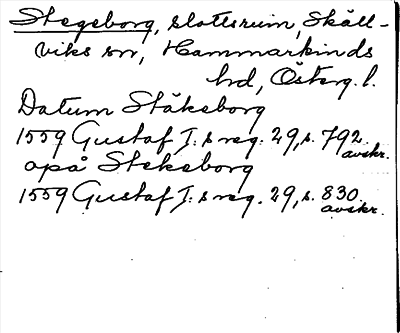 Stegeborg, slottsruin, Skäll-
viks sn, Hammarkinds
hd, Österg. l.
Datum Stäkeborg
1559 Gustaf I:s reg. 29, s. 792
avskr.
opå Stekeborg
1559 Gustaf I:s reg. 29, s. 830
avskr.